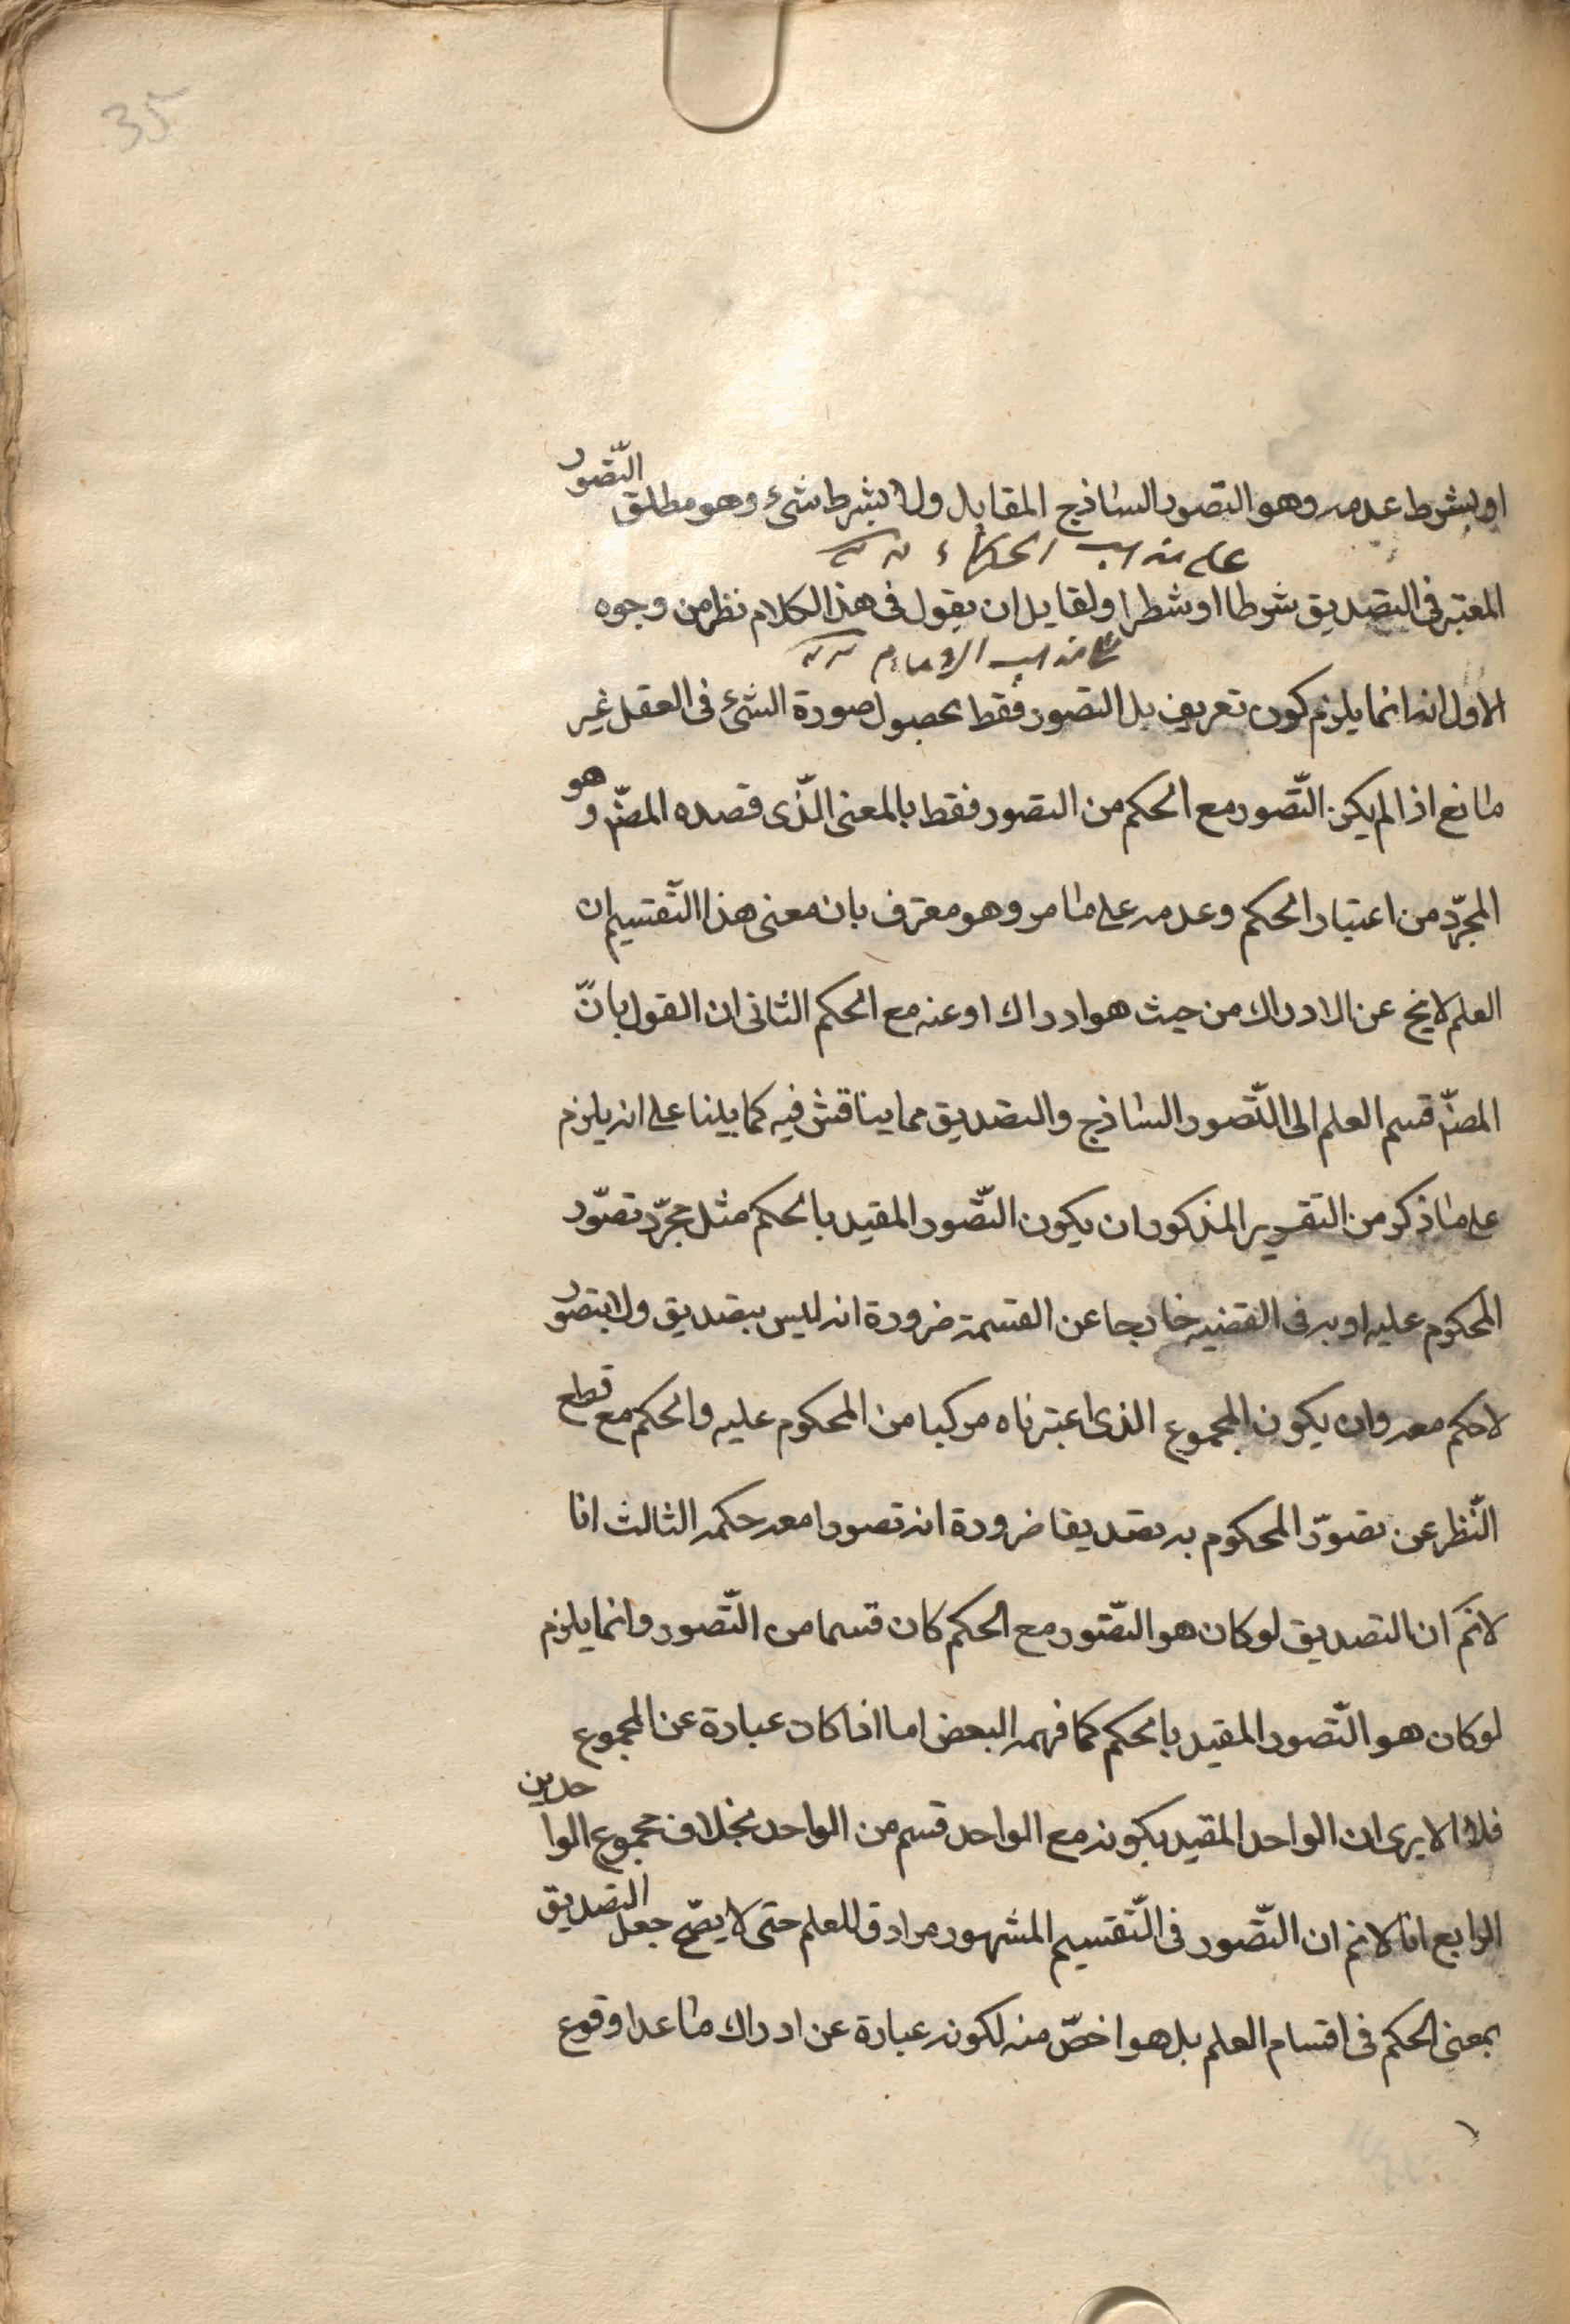 35
او بشرط عدمه وهو التصور الساذج المقابل ولا بشرط شئ وهو مطلق التّصور
على مذهب الحكماء
المعتبر فى التصديق شرطا او شطرا ولقايل ان يقول فى هذا الكلام نظر من وجوه
على مذهب الامام
الاول انه انما يلزم كون تعريف بل التصور فقط بحصول صورة الشئ فى العقل غير
مانع اذا لم يكن التّصور مع الحكم من التصور فقط بالمعنى الّذى قصده المصّ وهو
المجرّد من اعتبار الحكم وعدمه على ما مر وهو معترف بان معنى هذا التّقسيم ان
العلم لا يخ عن الادراك من حيث هو ادراك او عنه مع الحكم الثانى ان القول بانّ
المصّ قسم العلم الى التّصور الساذج والتصديق مما يناقش فيه كما بينا على انه يلزم
على ما ذكر من التقرير المذكور ان يكون التّصور المقيد بالحكم مثل مجرّد تصوّر
المحكوم عليه او به فى القضيه خارجا عن القسمة ضرورة انه ليس بتصديق ولا بتصور
لا حكم معه وان يكون المجموع الذى اعتبرناه مركبا من المحكوم عليه والحكم مع قطع
النّظر عن تصوّر المحكوم به تصديقا ضرورة انه تصور امعه حكمه الثالث انا
لانم ان التصديق لو كان هو التصّور مع الحكم كان قسما من التّصور وانما يلزم
لو كان هو التّصور المقيد بالحكم كما فهمه البعض اما اذا كان عبارة عن المجموع
فلا الا يرى ان الواحد المقيد بكونه مع الواحد قسم من الواحد بخلاف مجموع الواحدين
الرابع انا لانم ان التّصور فى التّقسيم المشهور مرادف للعلم حتى لا يصّح جعل التصديق
بمعنى الحكم فى اقسام العلم بل هو اخصّ منه لكونه عبارة عن ادراك ما عدا وقوع